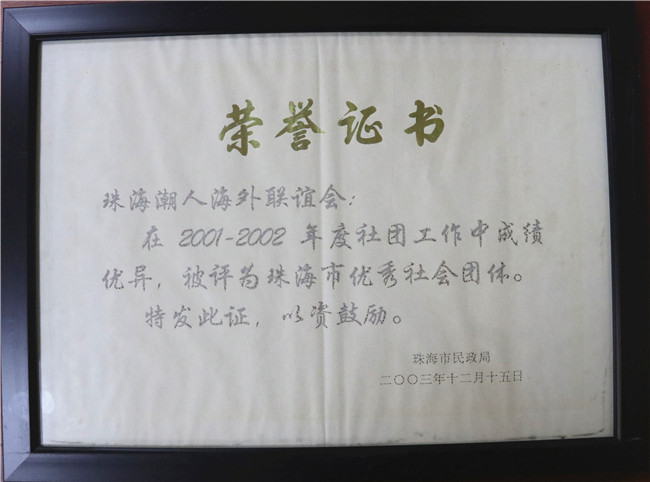 荣誉证书
珠海潮人海外联谊会：
在 2001-2002 年度社团工作中成绩
优异，被评为珠海市优秀社会团体。
特发此证，以资鼓励。
珠海市民政局
二〇〇三年十二月十五日